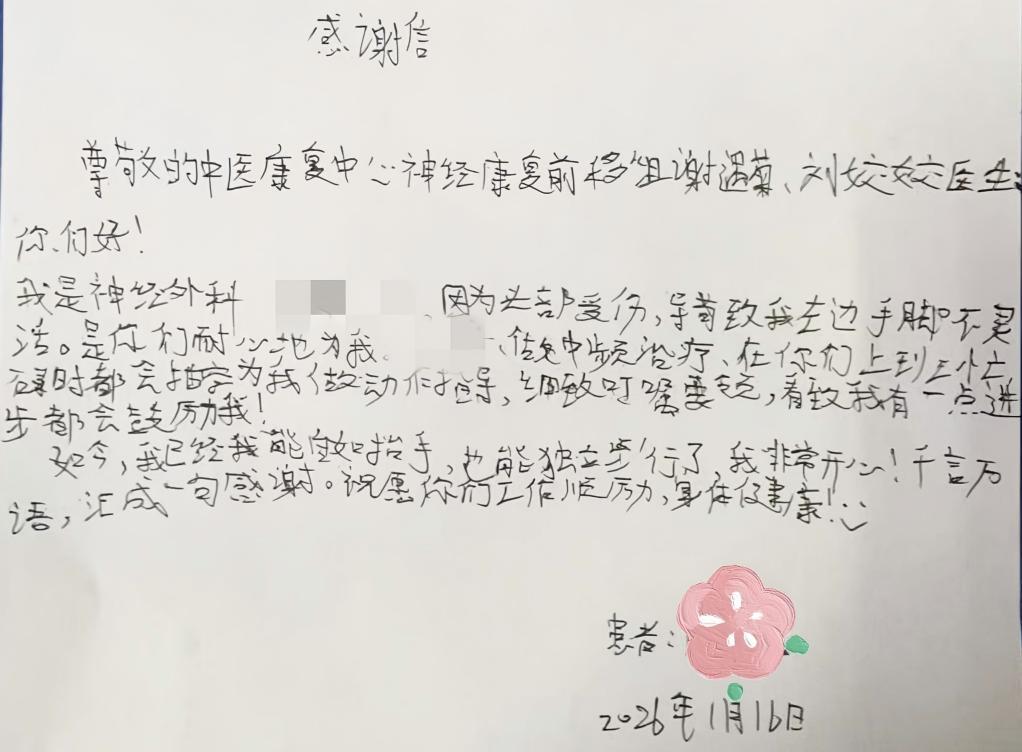 感谢信
尊敬的中医康复中心神经康复前移组谢遇菊、刘姣姣医生:
你们好!
我是神经外科 因为头部受伤,导致我左边手脚不灵
活。是你们耐心地为我 中频治疗、在你们上到上忙
碌时都会抽空为我做动作指导,细致叮嘱要点,看致我有一点进
步都会鼓励我!
如今,我已经我能自如抬手,也能独立步行了,我非常开心!千言万
语,汇成一句感谢。祝愿你们工作顺历力,身体健康!
患者:
2026年1月16日